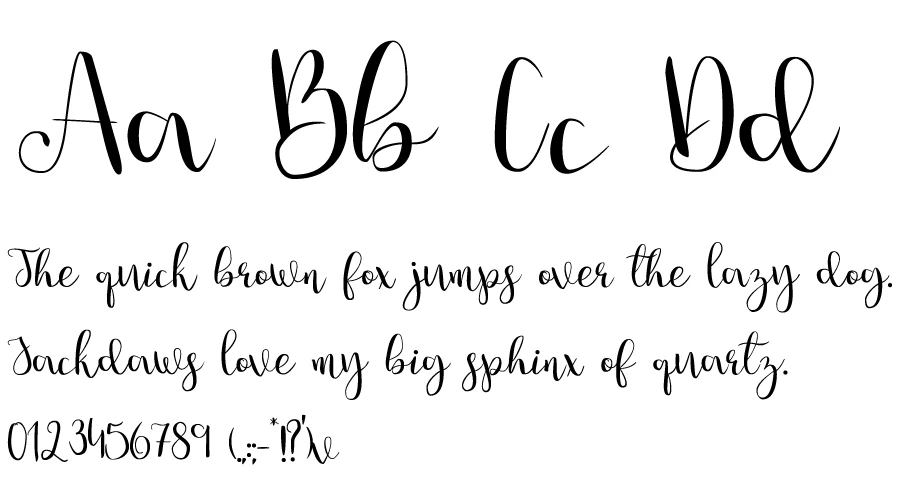 Aa Bb Cc Dd
The quick brown fox jumps over the lazy dog.
Jackdaws love my big sphinx of quartz.
0123456789 (.,:;-*!?')